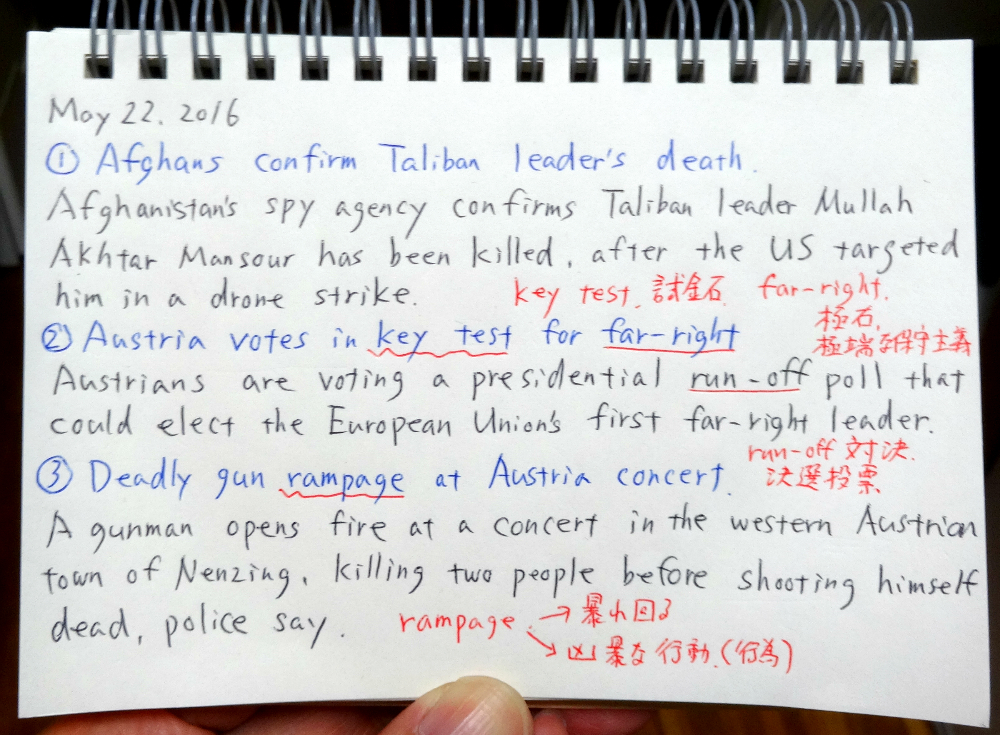 May 22, 2016
① Afghans confirm Taliban leader's death.
Afghanistan's spy agency confirms Taliban leader Mullah
Akhtar Mansour has been killed, after the US targeted
him in a drone strike.
key test. 試金石. far-right.
極右.
極端な保守主義
② Austria votes in key test for far-right
Austrians are voting a presidential run-off poll that
could elect the European Union's first far-right leader.
run-off 対決.
決選投票
③ Deadly gun rampage at Austria concert.
A gunman opens fire at a concert in the western Austrian
town of Nenzing, killing two people before shooting himself
dead, police say.
rampage. → 暴れ回る
↘ 凶暴な行動.(行為)